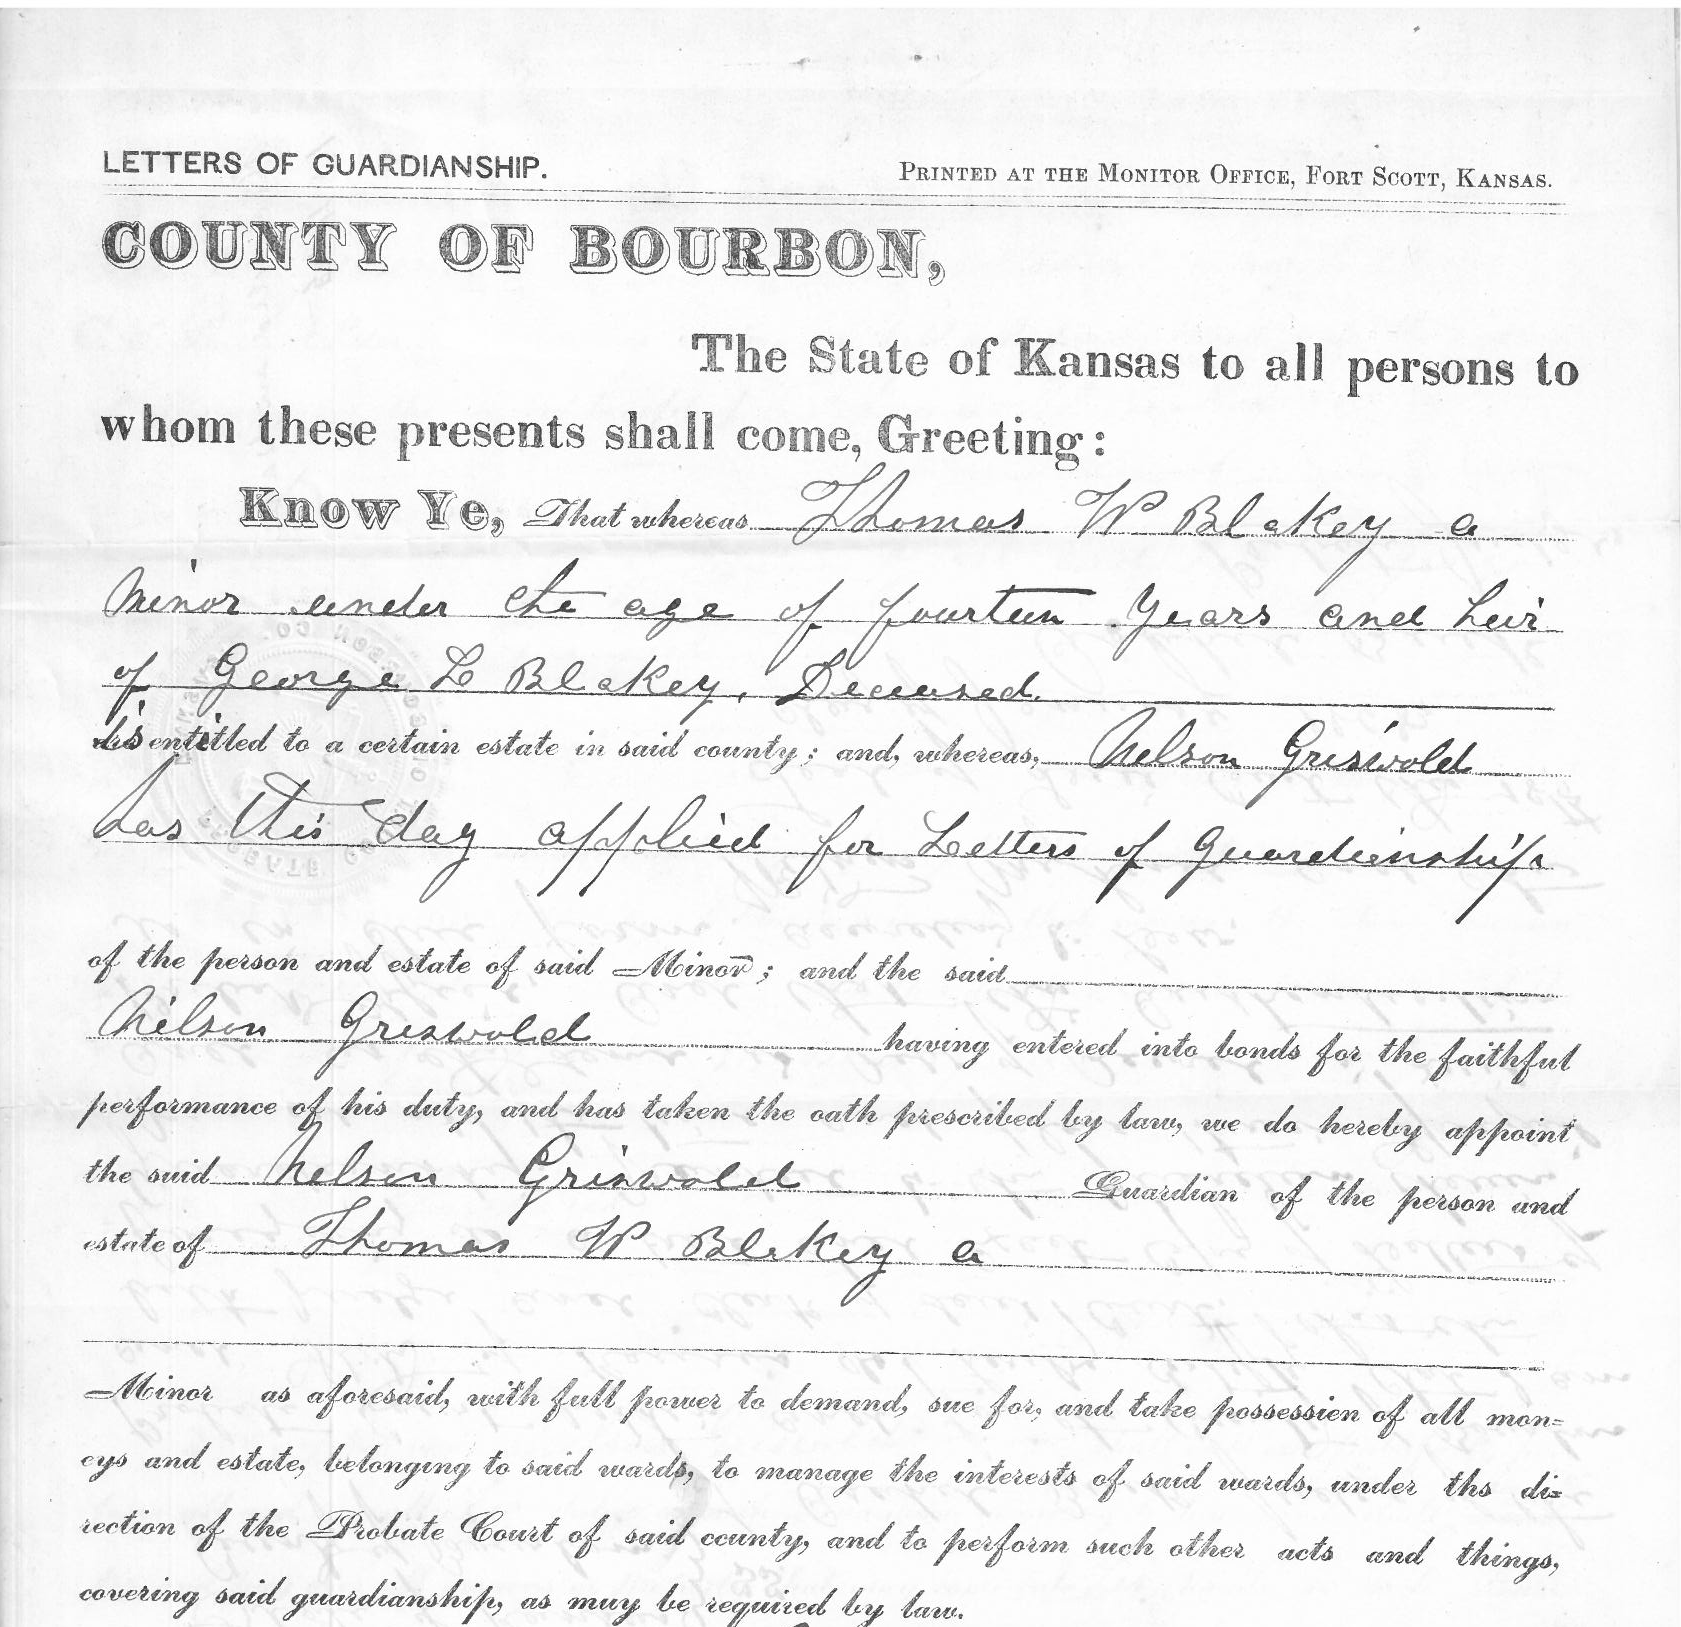 LETTERS OF GUARDIANSHIP. PRINTED AT THE MONITOR OFFICE, FORT SCOTT, KANSAS.
COUNTY OF BOURBON,
The State of Kansas to all persons to
whom these presents shall come, Greeting:
Know Ye, That whereas Thomas W Blakey a
Minor under the age of fourteen Years and heir
of George L Blakey, Deceased.
is entitled to a certain estate in said county; and, whereas, Nelson Griswold
has this day applied for Letters of Guardianship
of the person and estate of said Minor; and the said
Nelson Griswold having entered into bonds for the faithful
performance of his duty, and has taken the oath prescribed by law, we do hereby appoint
the said Nelson Griswold Guardian of the person and
estate of Thomas W Blakey a
Minor as aforesaid, with full power to demand, sue for, and take possession of all mon=
eys and estate, belonging to said wards, to manage the interests of said wards, under ths di=
rection of the Probate Court of said county, and to perform such other acts and things,
covering said guardianship, as may be required by law.